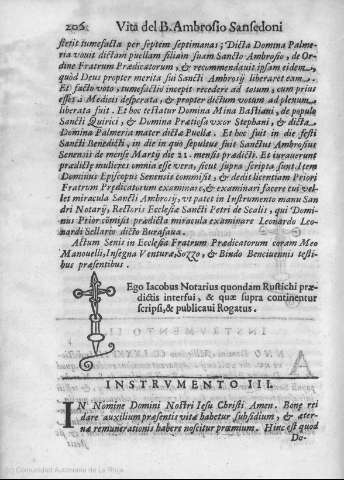 206 Vita del B. Ambrosio Sansedoni
stetit tumefacta per septem septimanas; Dicta Domina Palme-
ria vouit dictam puellam filiam suam Sancto Ambrosio, de Or-
dine Fratrum Prædicatorum, & recommendauit ipsam eidem,
quòd Deus propter merita sui Sancti Ambrosij liberaret eam.
Et facto voto, tumefactio incepit recedere ad totum, cum prius
esset à Medicis desperata, & propter dictum votum ad plenum
liberata fuit. Et hoc testatur Domina Mina Bastiani, de populo
Sancti Quirici, & Domina Pratiosa vxor Stephani, & dicta
Domina Palmeria mater dicta Puellæ. Et hoc fuit in die festi
Sancti Benedicti, in die in quo sepultus fuit Sanctus Ambrosius
Senensis de mense Martij die 21. mensis prædicti. Et iurauerunt
prædictæ mulieres omnia esse vera, sicut supra scripta sunt. Item
Dominus Episcopus Senensis commisit, & dedit licentiam Priori
Fratrum Prædicatorum examinare, & examinari facere cui vel-
let miracula Sancti Ambrosij, vt patet in Instrumento manu San
dri Notarij, Rectoris Ecclesiæ Sancti Petri de Scalis, qui Domi-
nus Prior cōmisit prædicta miracula examinare Leonardo Leo-
nardi Sellario dicto Burasaua.
Actum Senis in Ecclesia Fratrum Prædicatorum coram Meo
Manouelli, Insegna Venturæ, Sozzo, & Bindo Benciuennis testi-
bus præsentibus.
Ego Iacobus Notarius quondam Rustichi præ-
dictis interfui, & quæ supra continentur
scripsi, & publicaui Rogatus.
INSTRVMENTO III.
IN Nomine Domini Nostri Iesu Christi Amen. Bone rei
dare auxilium præsentis vitæ habetur subsidium, & æter-
næ remunerationis habere noscitur præmium. Hinc est quod
Do-
(c) Comunidad Autónoma de La Rioja